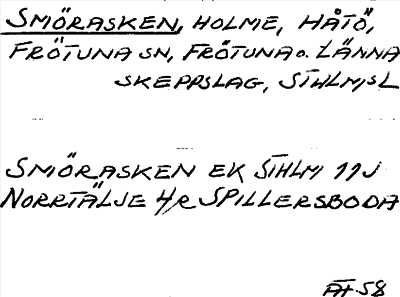 SMÖRASKEN, HOLME, HÅTÖ,
FRÖTUNA SN, FRÖTUNA o. LÄNNA
SKEPPSLAG, STHLMS L
SMÖRASKEN EK STHLM 11J
NORRTÄLJE 4/R SPILLERSBODA
ÄH 58